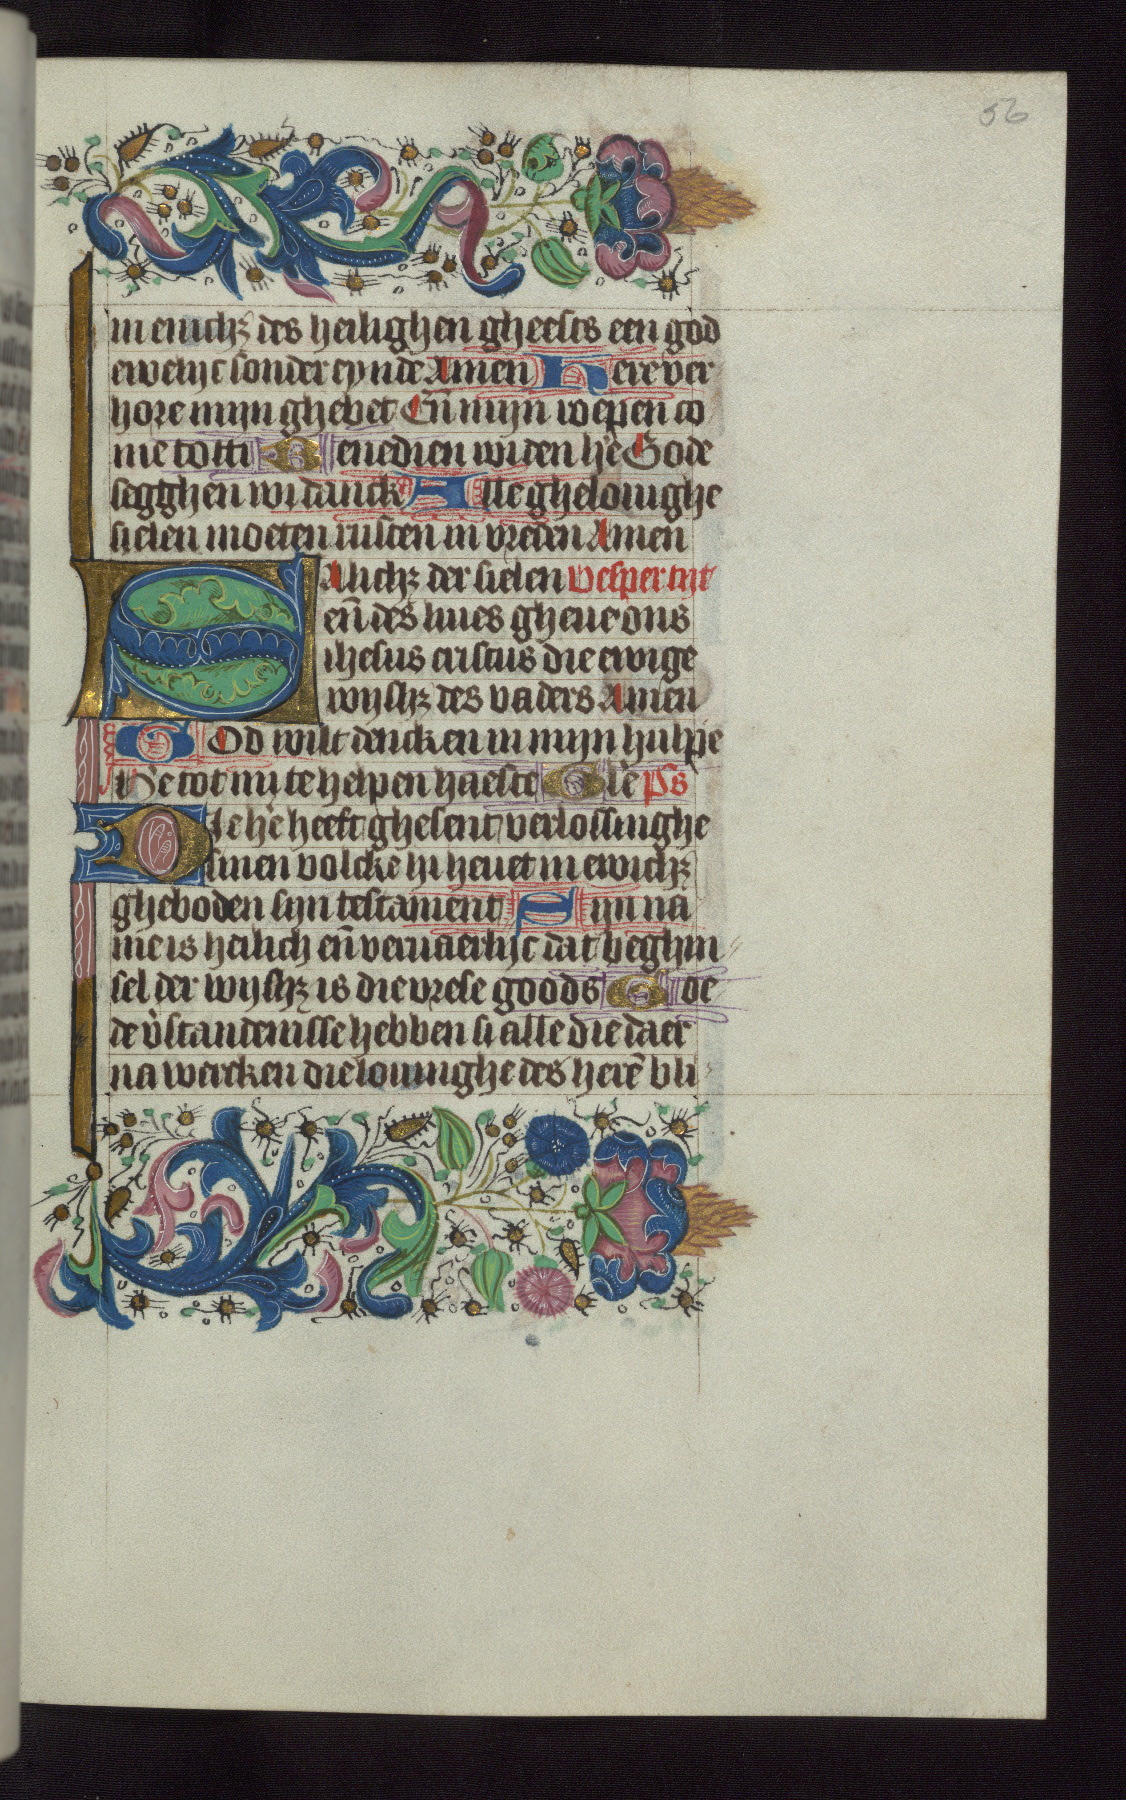 56
in enich&#42813; des heilighen gheests een god
ewelijc sonder eynde Amen Here ver
hore mijn ghebet Eñ mijn roepen co
me totti Benedien wi den he Gode
segghen wi danck Alle ghelouighe
sielen moeten rusten in vreden Amen
Salich&#42813; der sielen Vespertijt
eñ des liues gheue ons
ihesus cristus die ewige
wijsh&#42813; des vaders Amen
God wilt dencken in mijn hulpe
He tot mi te helpen haeste Glē ps
Die hē heeft ghesent verlossinghe
sinen volcke hi heuet in ewich&#42813;
gheboden sijn testament Sijn na
me is heilich eñ veruaerlijc dat beghin
sel der wijsh&#42813; is die vrese goods Goe
de v̄standenisse hebben si alle die daer
na wercken die louinghe des herē bli